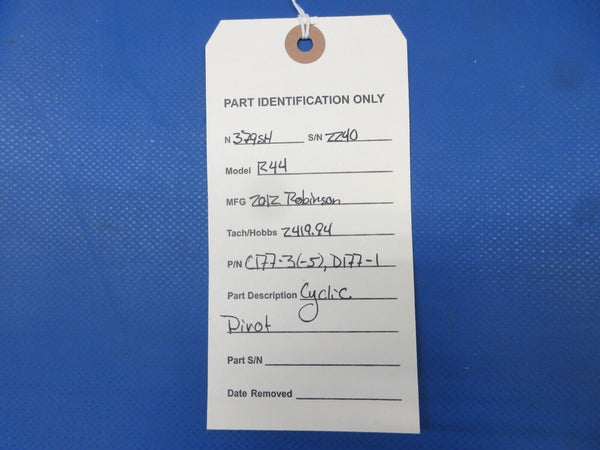 PART IDENTIFICATION ONLY
N 379SH S/N 2240
Model R44
MFG 2012 Robinson
Tach/Hobbs 2419.94
P/N C177-3(-5), D177-1
Part Description Cyclic
Pivot
Part S/N
Date Removed